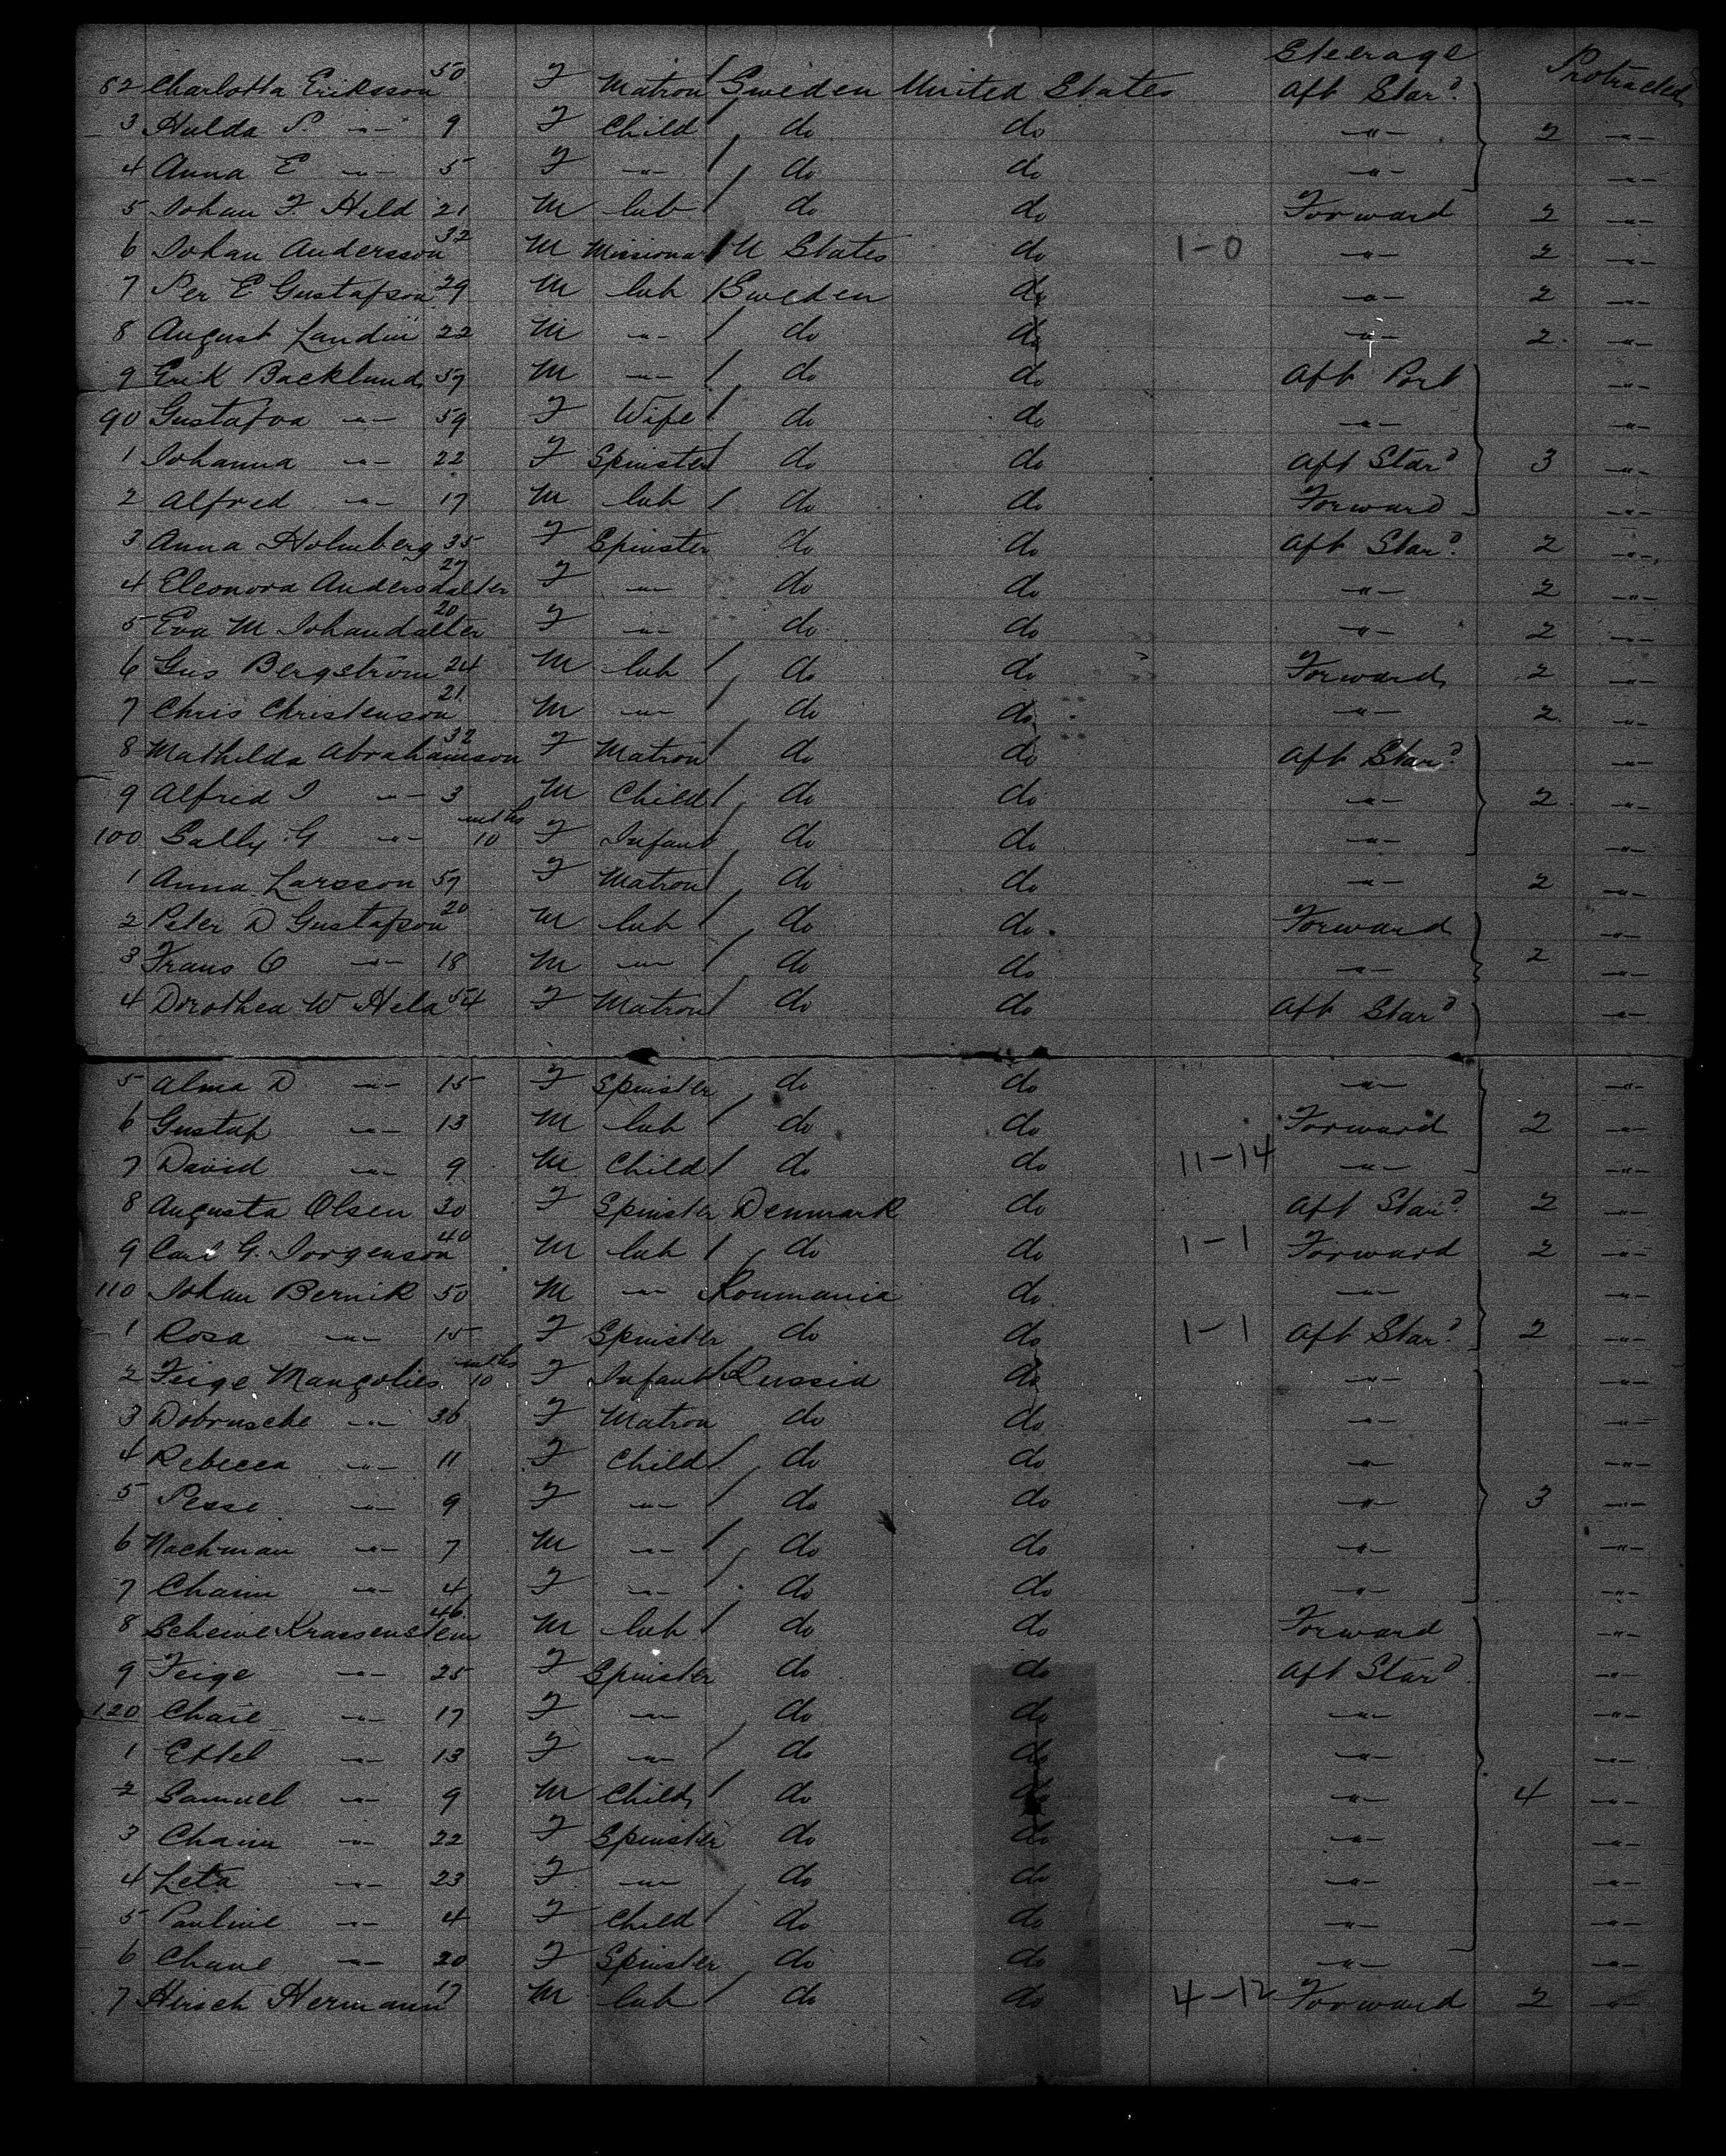 Steerage Protracted
82 Charlotta Eriksson 50 F Matron Sweden United States Aft Star?
3 Hulda P. -"- 9 F Child do do -"- 2 -"-
4 Anna E -"- 5 F -"- do do -"- -"-
5 Johan F. Held 21 M lab do do Forward 2 -"-
6 Johan Andersson 32 M Missionar U States do 1-0 -"- 2 -"-
7 Per E Gustafson 29 M lab Sweden do -"- 2 -"-
8 August Landin 22 M -"- do do -"- 2 -"-
9 Erik Backlund 57 M -"- do do Aft Port -"-
90 Gustafva -"- 59 F Wife do do -"- -"-
1 Johanna -"- 22 F Spinster do do Aft Star? 3 -"-
2 Alfred -"- 17 M lab do do Forward -"-
3 Anna Holmberg 35 F Spinster do do Aft Star? 2 -"-
4 Eleonora Andersdatter 27 F -"- do do -"- 2 -"-
5 Eva M Johandatter 20 F -"- do do -"- 2 -"-
6 Gus Bergström 24 M lab do do Forward 2 -"-
7 Chris Christenson 21 M -"- do do -"- 2 -"-
8 Mathilda Abrahamson 32 F Matron do do Aft Star? -"-
9 Alfred J -"- 3 M Child do do -"- 2 -"-
100 Sally G -"- mths 10 F Infant do do -"- -"-
1 Anna Larsson 57 F Matron do do -"- 2 -"-
2 Peter D Gustafson 20 M lab do do Forward -"-
3 Frans O -"- 18 M -"- do do -"- 2 -"-
4 Dorothea W Hela 54 F Matron do do Aft Star? -"-
5 Alma D -"- 15 F Spinster do do -"- -"-
6 Gustaf -"- 13 M lab do do Forward 2 -"-
7 David -"- 9 M Child do do 11-14 -"- -"-
8 Augusta Olsen 30 F Spinster Denmark do Aft Star? 2 -"-
9 Carl G. Jorgenson 40 M lab do do 1-1 Forward 2 -"-
110 Johan Bernik 50 M -"- Roumania do -"- -"-
1 Rosa -"- 15 F Spinster do do 1-1 Aft Star? 2 -"-
2 Feige Mangolies mths 10 F Infant Russia do -"- -"-
3 Dobrusche -"- 36 F Matron do do -"- -"-
4 Rebecca -"- 11 F Child do do -"- -"-
5 Pesse -"- 9 F -"- do do -"- 3 -"-
6 Nachman -"- 7 M -"- do do -"- -"-
7 Chaim -"- 4 F -"- do do -"- -"-
8 Scheine Krassenstein 46 M lab do do Forward -"-
9 Feige -"- 25 F Spinster do do Aft Star? -"-
120 Chaie -"- 17 F -"- do do -"- -"-
1 Ettel -"- 13 F -"- do do -"- -"-
2 Samuel -"- 9 M Child do do -"- 4 -"-
3 Chaim -"- 22 F Spinster do do -"- -"-
4 Leta -"- 23 F -"- do do -"- -"-
5 Pauline -"- 4 F Child do do -"- -"-
6 Chane -"- 20 F Spinster do do -"- -"-
7 Hirsch Hermann 17 M lab do do 4-12 Forward 2 -"-